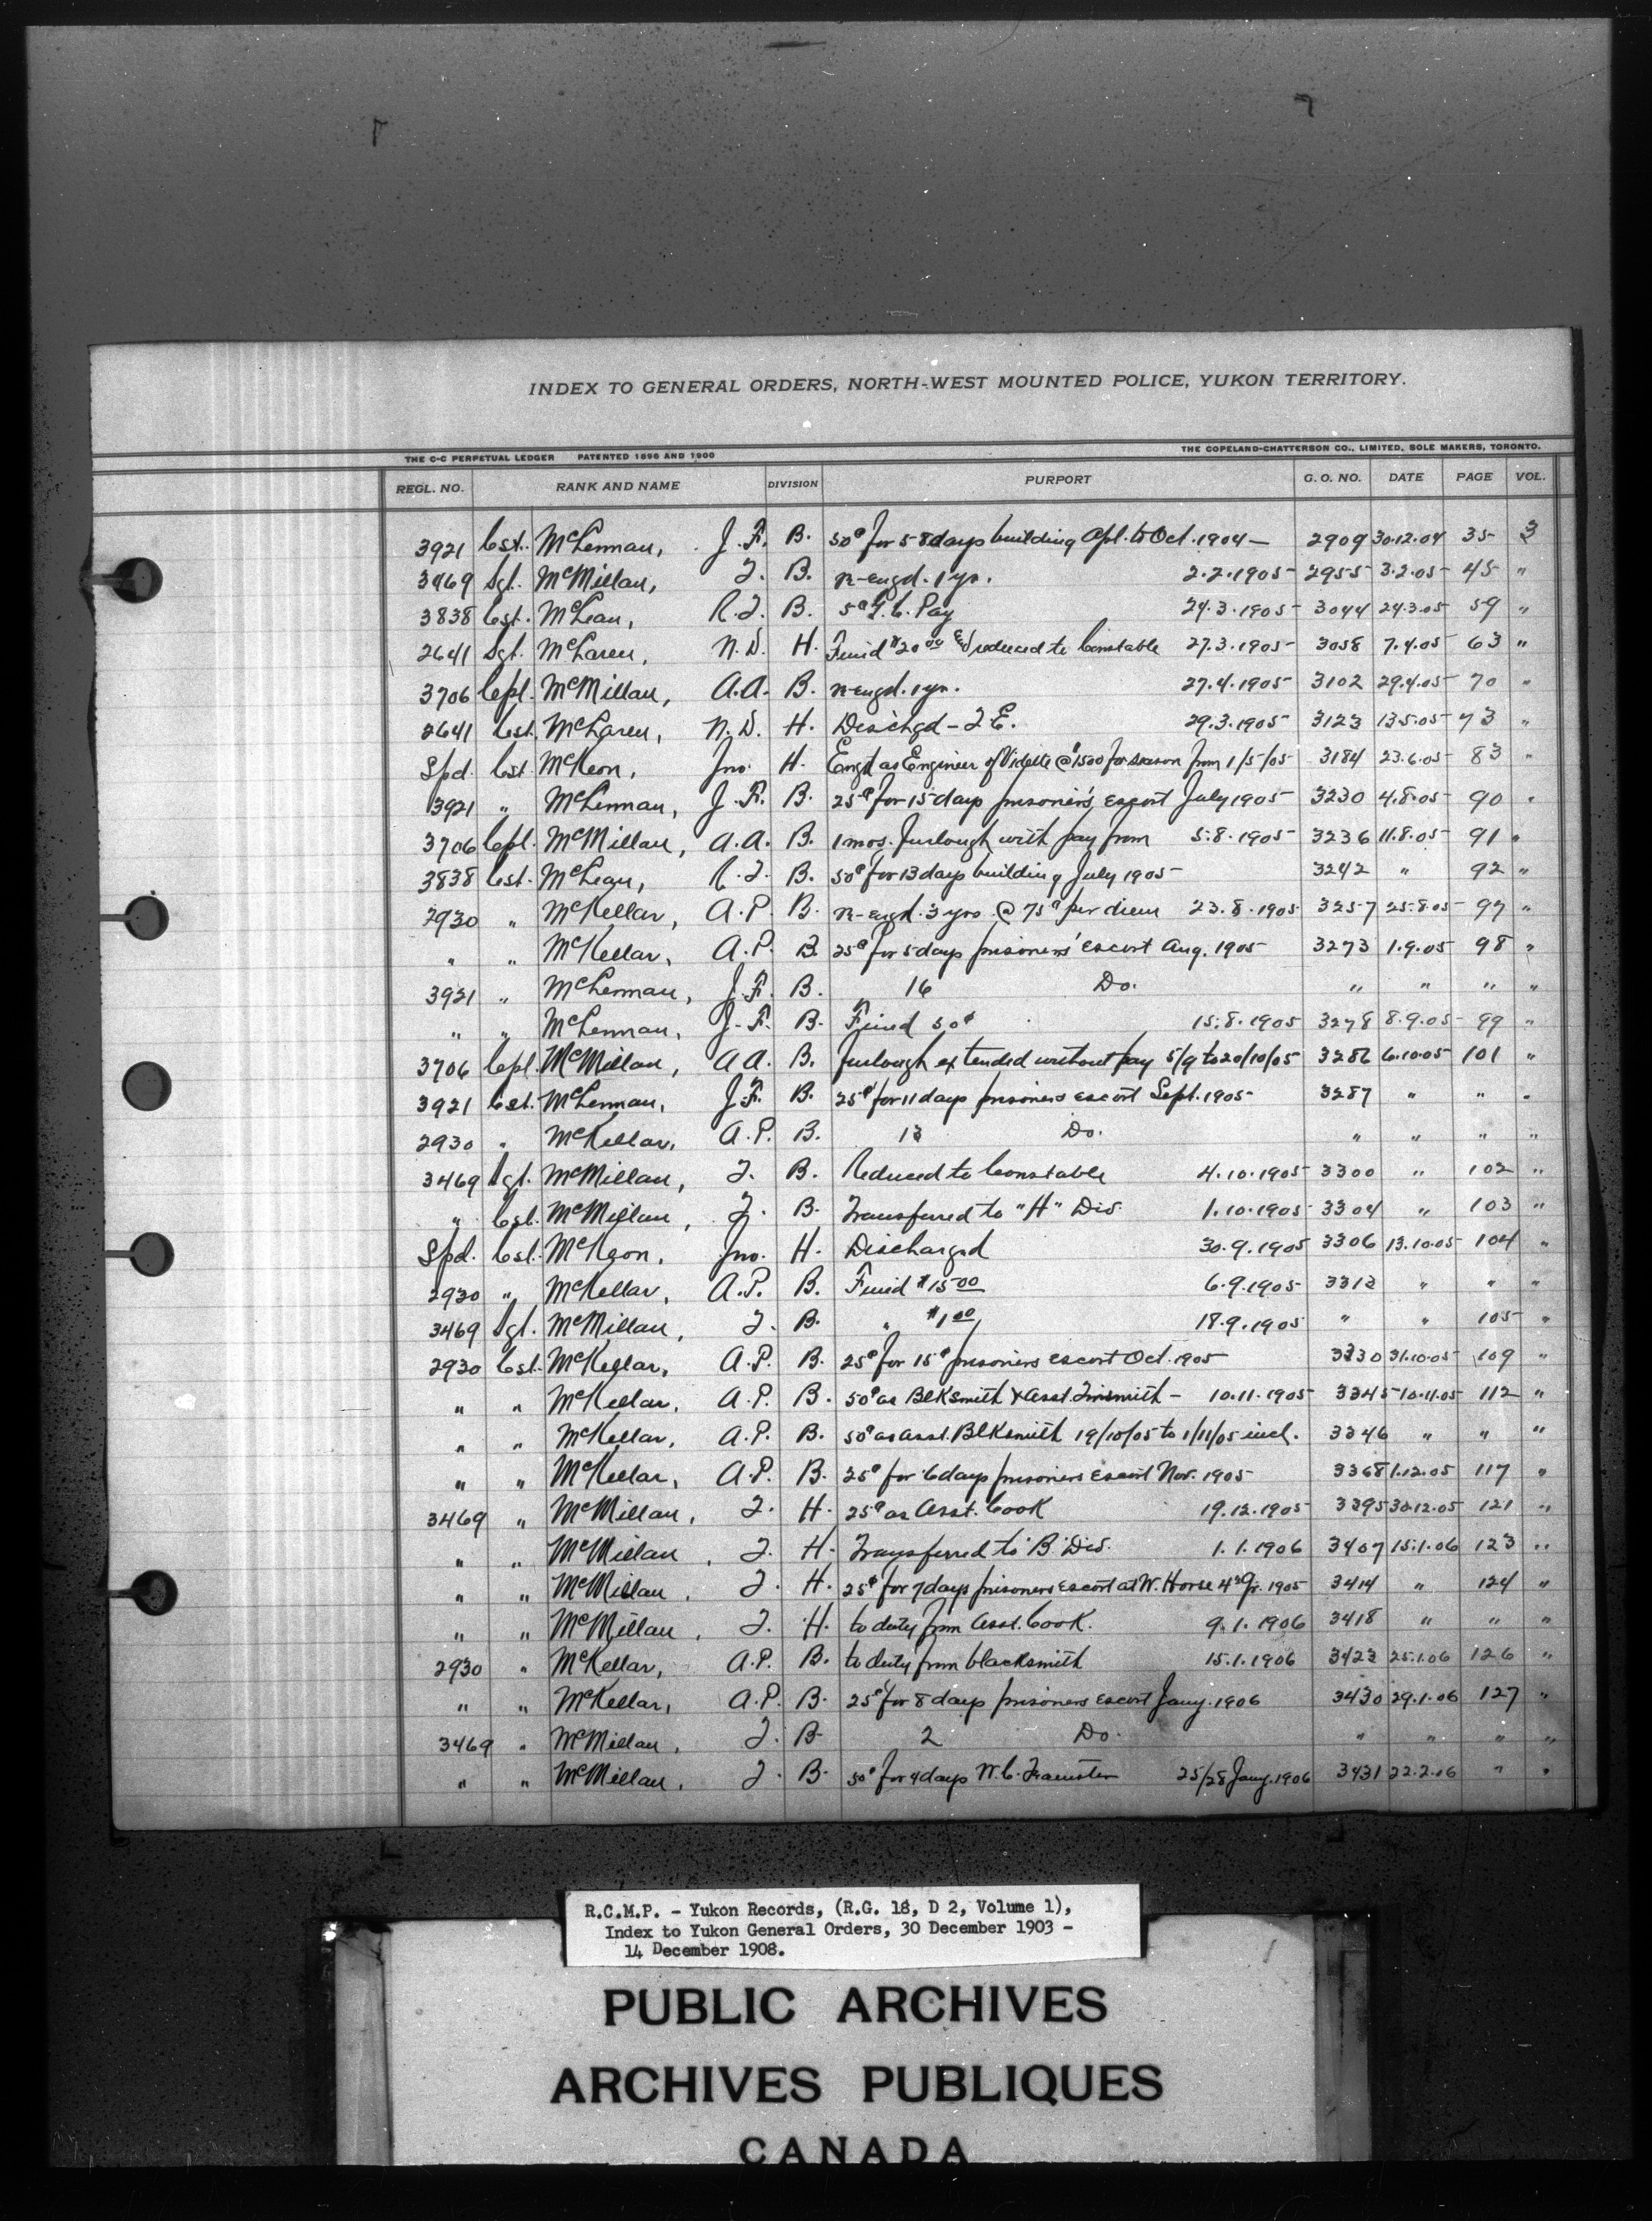 INDEX TO GENERAL ORDERS, NORTH-WEST MOUNTED POLICE, YUKON TERRITORY.
THE C-C PERPETUAL LEDGER PATENTED 1896 AND 1900 THE COPELAND-CHATTERSON CO., LIMITED, SOLE MAKERS, TORONTO.
REGL. NO. RANK AND NAME DIVISION PURPORT G. O. NO. DATE PAGE VOL.
3921 Cst. McLennan, J.F. B. 50¢ for 58 days building Apl. to Oct. 1904 — 2909 30.12.04 35 3
3469 Sgt. McMillan, J. B. re-engd. 1 yr. 2.2.1905 2955 3.2.05 45 "
3838 Cst. McLean, R.J. B. 5¢ G.C. Pay 24.3.1905 3044 24.3.05 59 "
2641 Sgt. McLaren, N.D. H. Fined $20.00 & reduced to Constable 27.3.1905 3058 7.4.05 63 "
3706 Cpl. McMillan, A.A. B. re-engd. 1 yr. 27.4.1905 3102 29.4.05 70 "
2641 Cst. McLaren, N.D. H. Dischgd – T.E. 29.3.1905 3123 13.5.05 73 "
Spd. Cst McKeon, Jno. H. Engd as Engineer of Vidette @ $1500 for season from 1/5/05 3184 23.6.05 83 "
3921 " McLennan, J.F. B. 25¢ for 15 days prisoner's escort July 1905 3230 4.8.05 90 "
3706 Cpl. McMillan, A.A. B. 1 mos. furlough with pay from 5.8.1905 3236 11.8.05 91 "
3838 Cst. McLean, R.J. B. 50¢ for 13 days building July 1905 3242 " 92 "
2930 " McKellar, A.P. B. re-engd. 3 yrs @ 75¢ per diem 23.8.1905 3257 25.8.05 97 "
" " McKellar, A.P. B. 25¢ for 5 days prisoners' escort Aug. 1905 3273 1.9.05 98 "
3921 " McLennan, J.F. B. 16 Do. " " " "
" " McLennan, J.F. B. Fined 50¢ 15.8.1905 3278 8.9.05 99 "
3706 Cpl. McMillan, A.A. B. furlough extended without pay 5/9 to 20/10/05 3286 6.10.05 101 "
3921 Cst. McLennan, J.F. B. 25¢ for 11 days prisoners escort Sept. 1905 3287 " " "
2930 " McKellar, A.P. B. 13 Do. " " " "
3469 Sgt. McMillan, J. B. Reduced to Constable 4.10.1905 3300 " 102 "
" Cst. McMillan, J. B. Transferred to "H" Div. 1.10.1905 3304 " 103 "
Spd. Cst. McKeon, Jno. H. Discharged 30.9.1905 3306 13.10.05 104 "
2930 " McKellar, A.P. B. Fined $15.00 6.9.1905 3313 " " "
3469 Sgt. McMillan, J. B. " $1.00 18.9.1905 " " 105 "
2930 Cst. McKellar, A.P. B. 25¢ for 15 prisoners escort Oct. 1905 3330 31.10.05 109 "
" " McKellar, A.P. B. 50¢ as Blksmith & Asst. Tinsmith – 10.11.1905 3345 10.11.05 112 "
" " McKellar, A.P. B. 50¢ as asst. Blksmith 19/10/05 to 1/11/05 incl. 3346 " " "
" " McKellar, A.P. B. 25¢ for 6 days prisoners escort Nov. 1905 3368 1.12.05 117 "
3469 " McMillan, J. H. 25¢ as Asst. Cook 19.12.1905 3395 30.12.05 121 "
" " McMillan, J. H. Transferred to "B" Div. 1.1.1906 3407 15.1.06 123 "
" " McMillan, J. H. 25¢ for 7 days prisoners escort at W. Horse 4th Qr. 1905 3414 " 124 "
" " McMillan, J. H. to duty from Asst. Cook. 9.1.1906 3418 " " "
2930 " McKellar, A.P. B. to duty from blacksmith 15.1.1906 3423 25.1.06 126 "
" " McKellar, A.P. B. 25¢ for 8 days prisoners escort Jany. 1906 3430 29.1.06 127 "
3469 " McMillan, J. B. 2 Do. " " " "
" " McMillan, J. B. 50¢ for 4 days W.C. Teamster 25/28 Jany. 1906 3431 22.2.06 " "
R.C.M.P. - Yukon Records, (R.G. 18, D 2, Volume 1),
Index to Yukon General Orders, 30 December 1903 -
14 December 1908.
PUBLIC ARCHIVES
ARCHIVES PUBLIQUES
CANADA